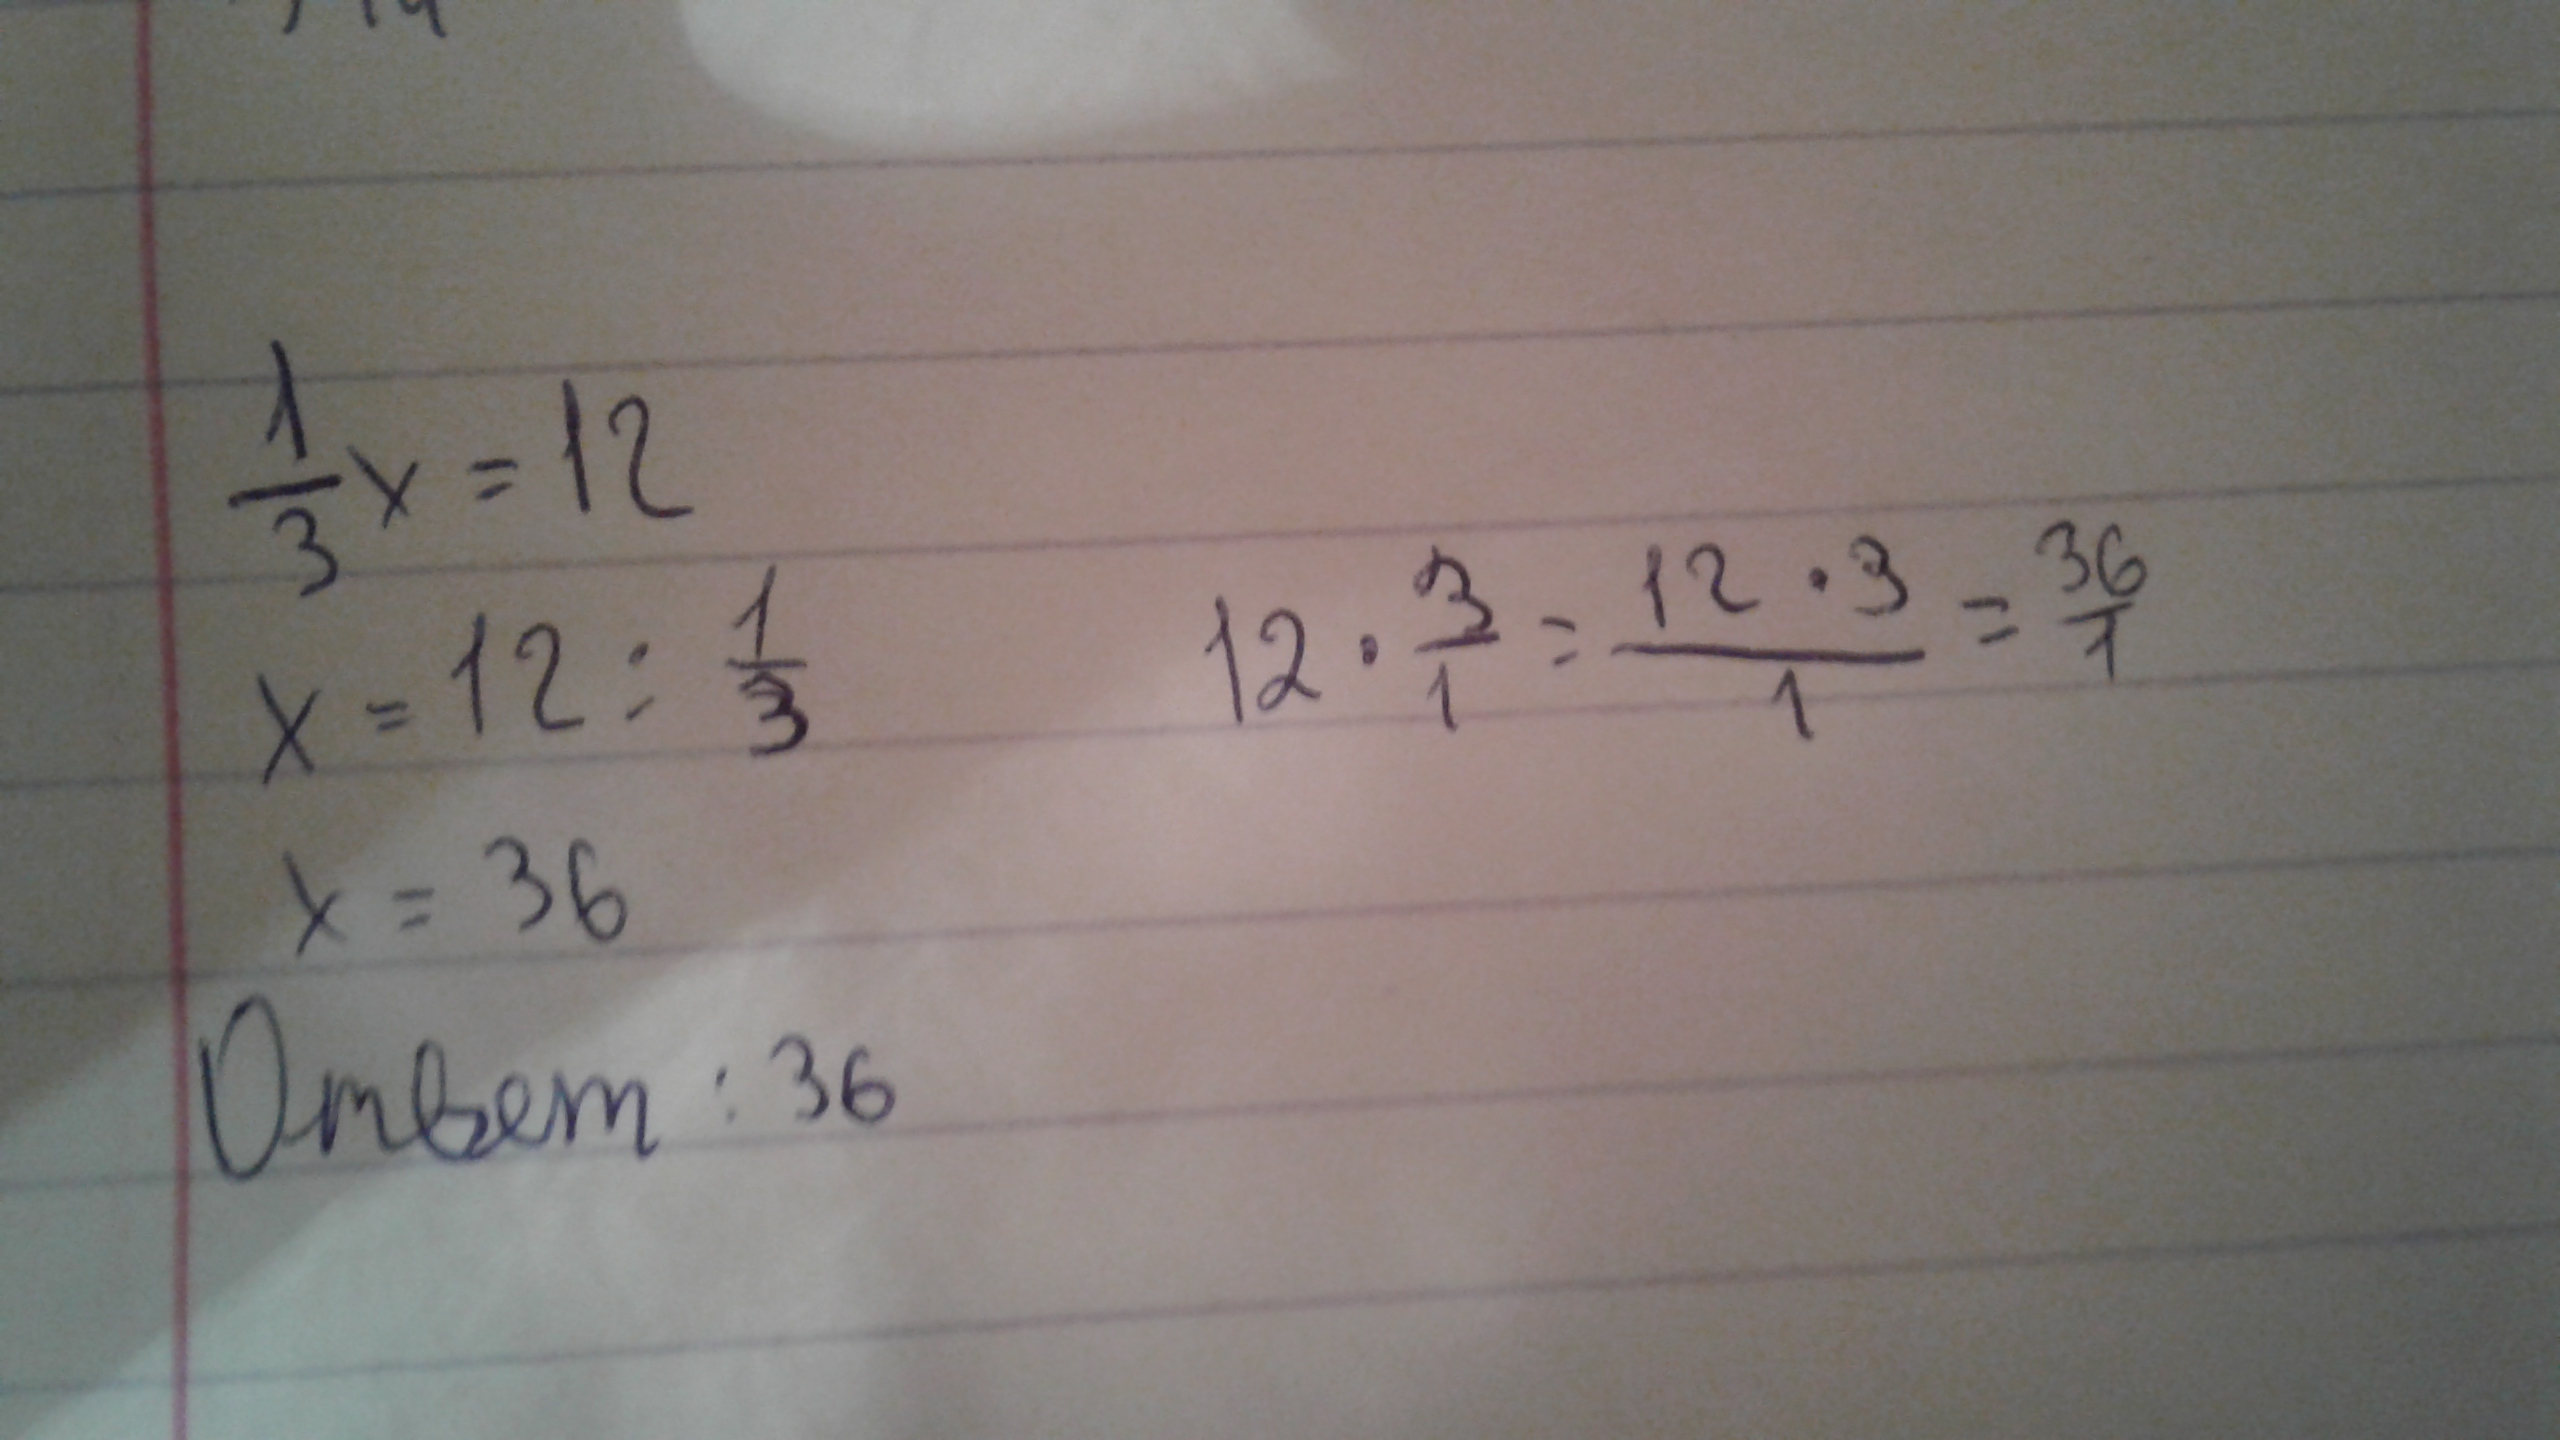 1/3 x = 12
x = 12 : 1/3
12 · 3/1 = 12 · 3/1 = 36/1
x = 36
Ответ : 36